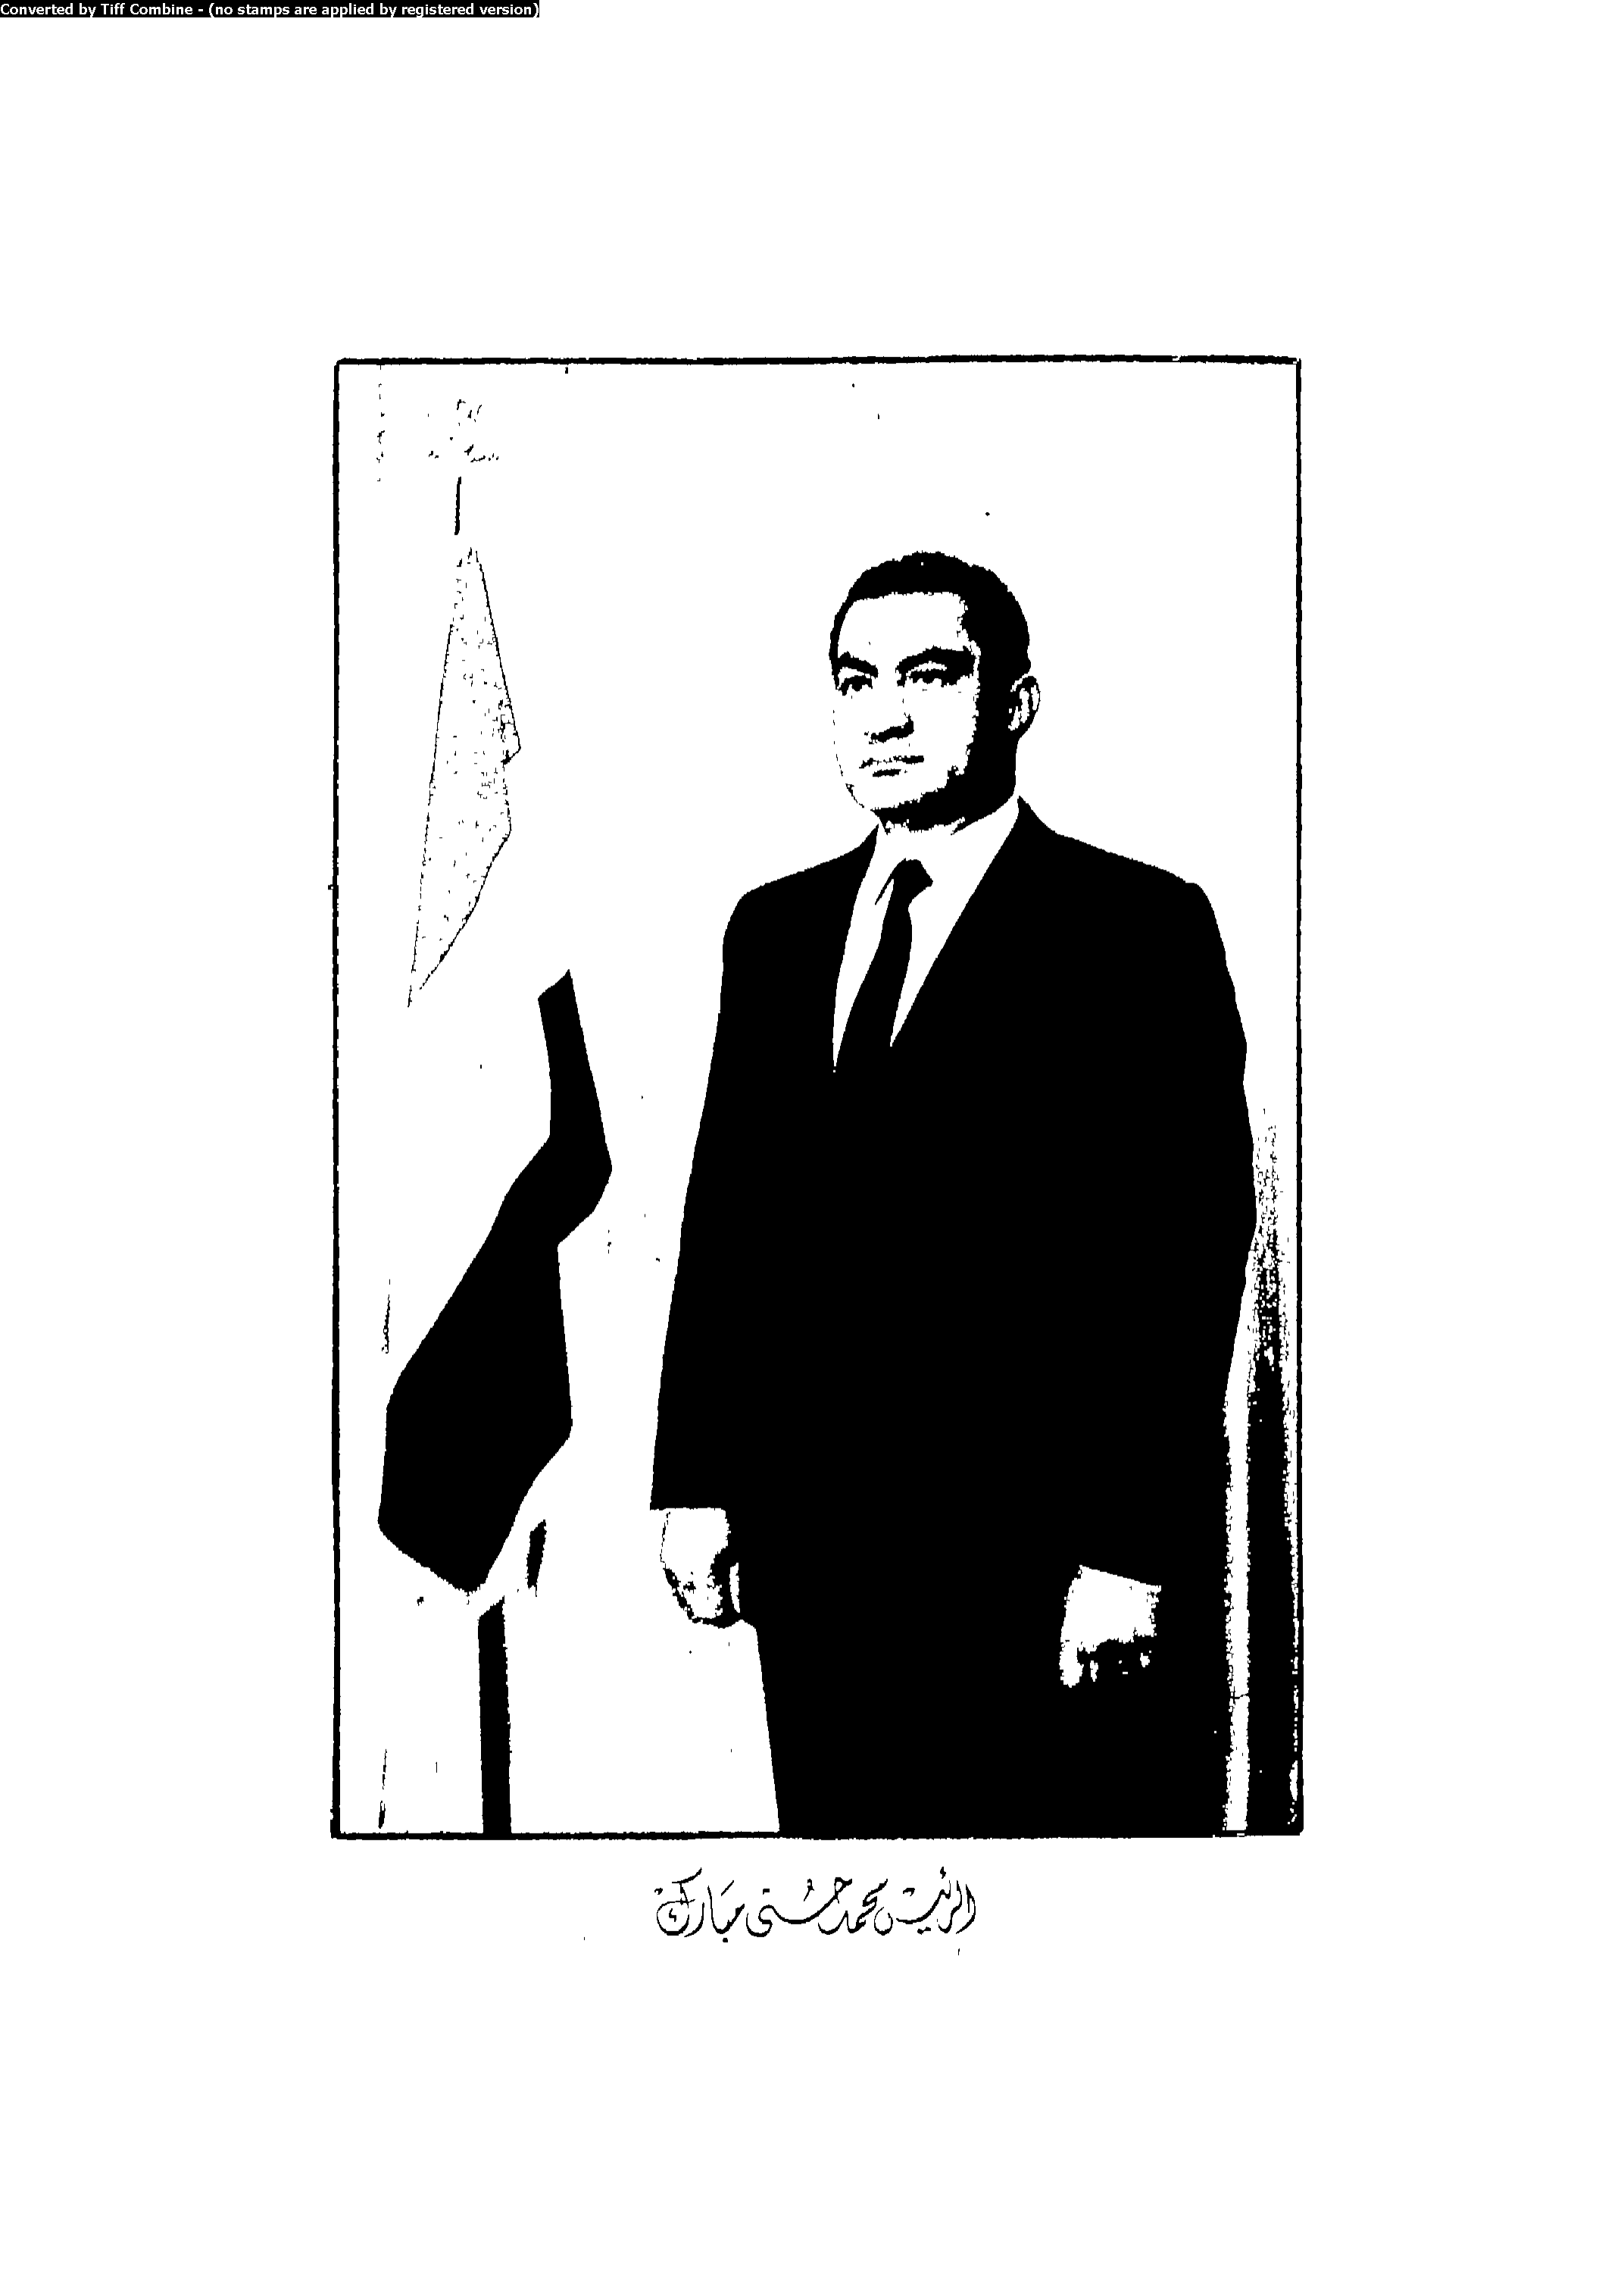 Converted by Tiff Combine - (no stamps are applied by registered version)
الرئيس محمد حسنى مبارك